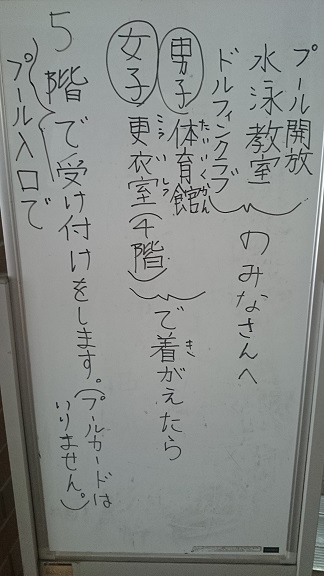 プール開放
水泳教室
ドルフィンクラブ
のみなさんへ
男子 体育館
たいいくかん
女子 更衣室(4階)
こういしつ
で着がえたら
き
5階で受け付けをします。(プールカードは
いりません。)
プール入口で